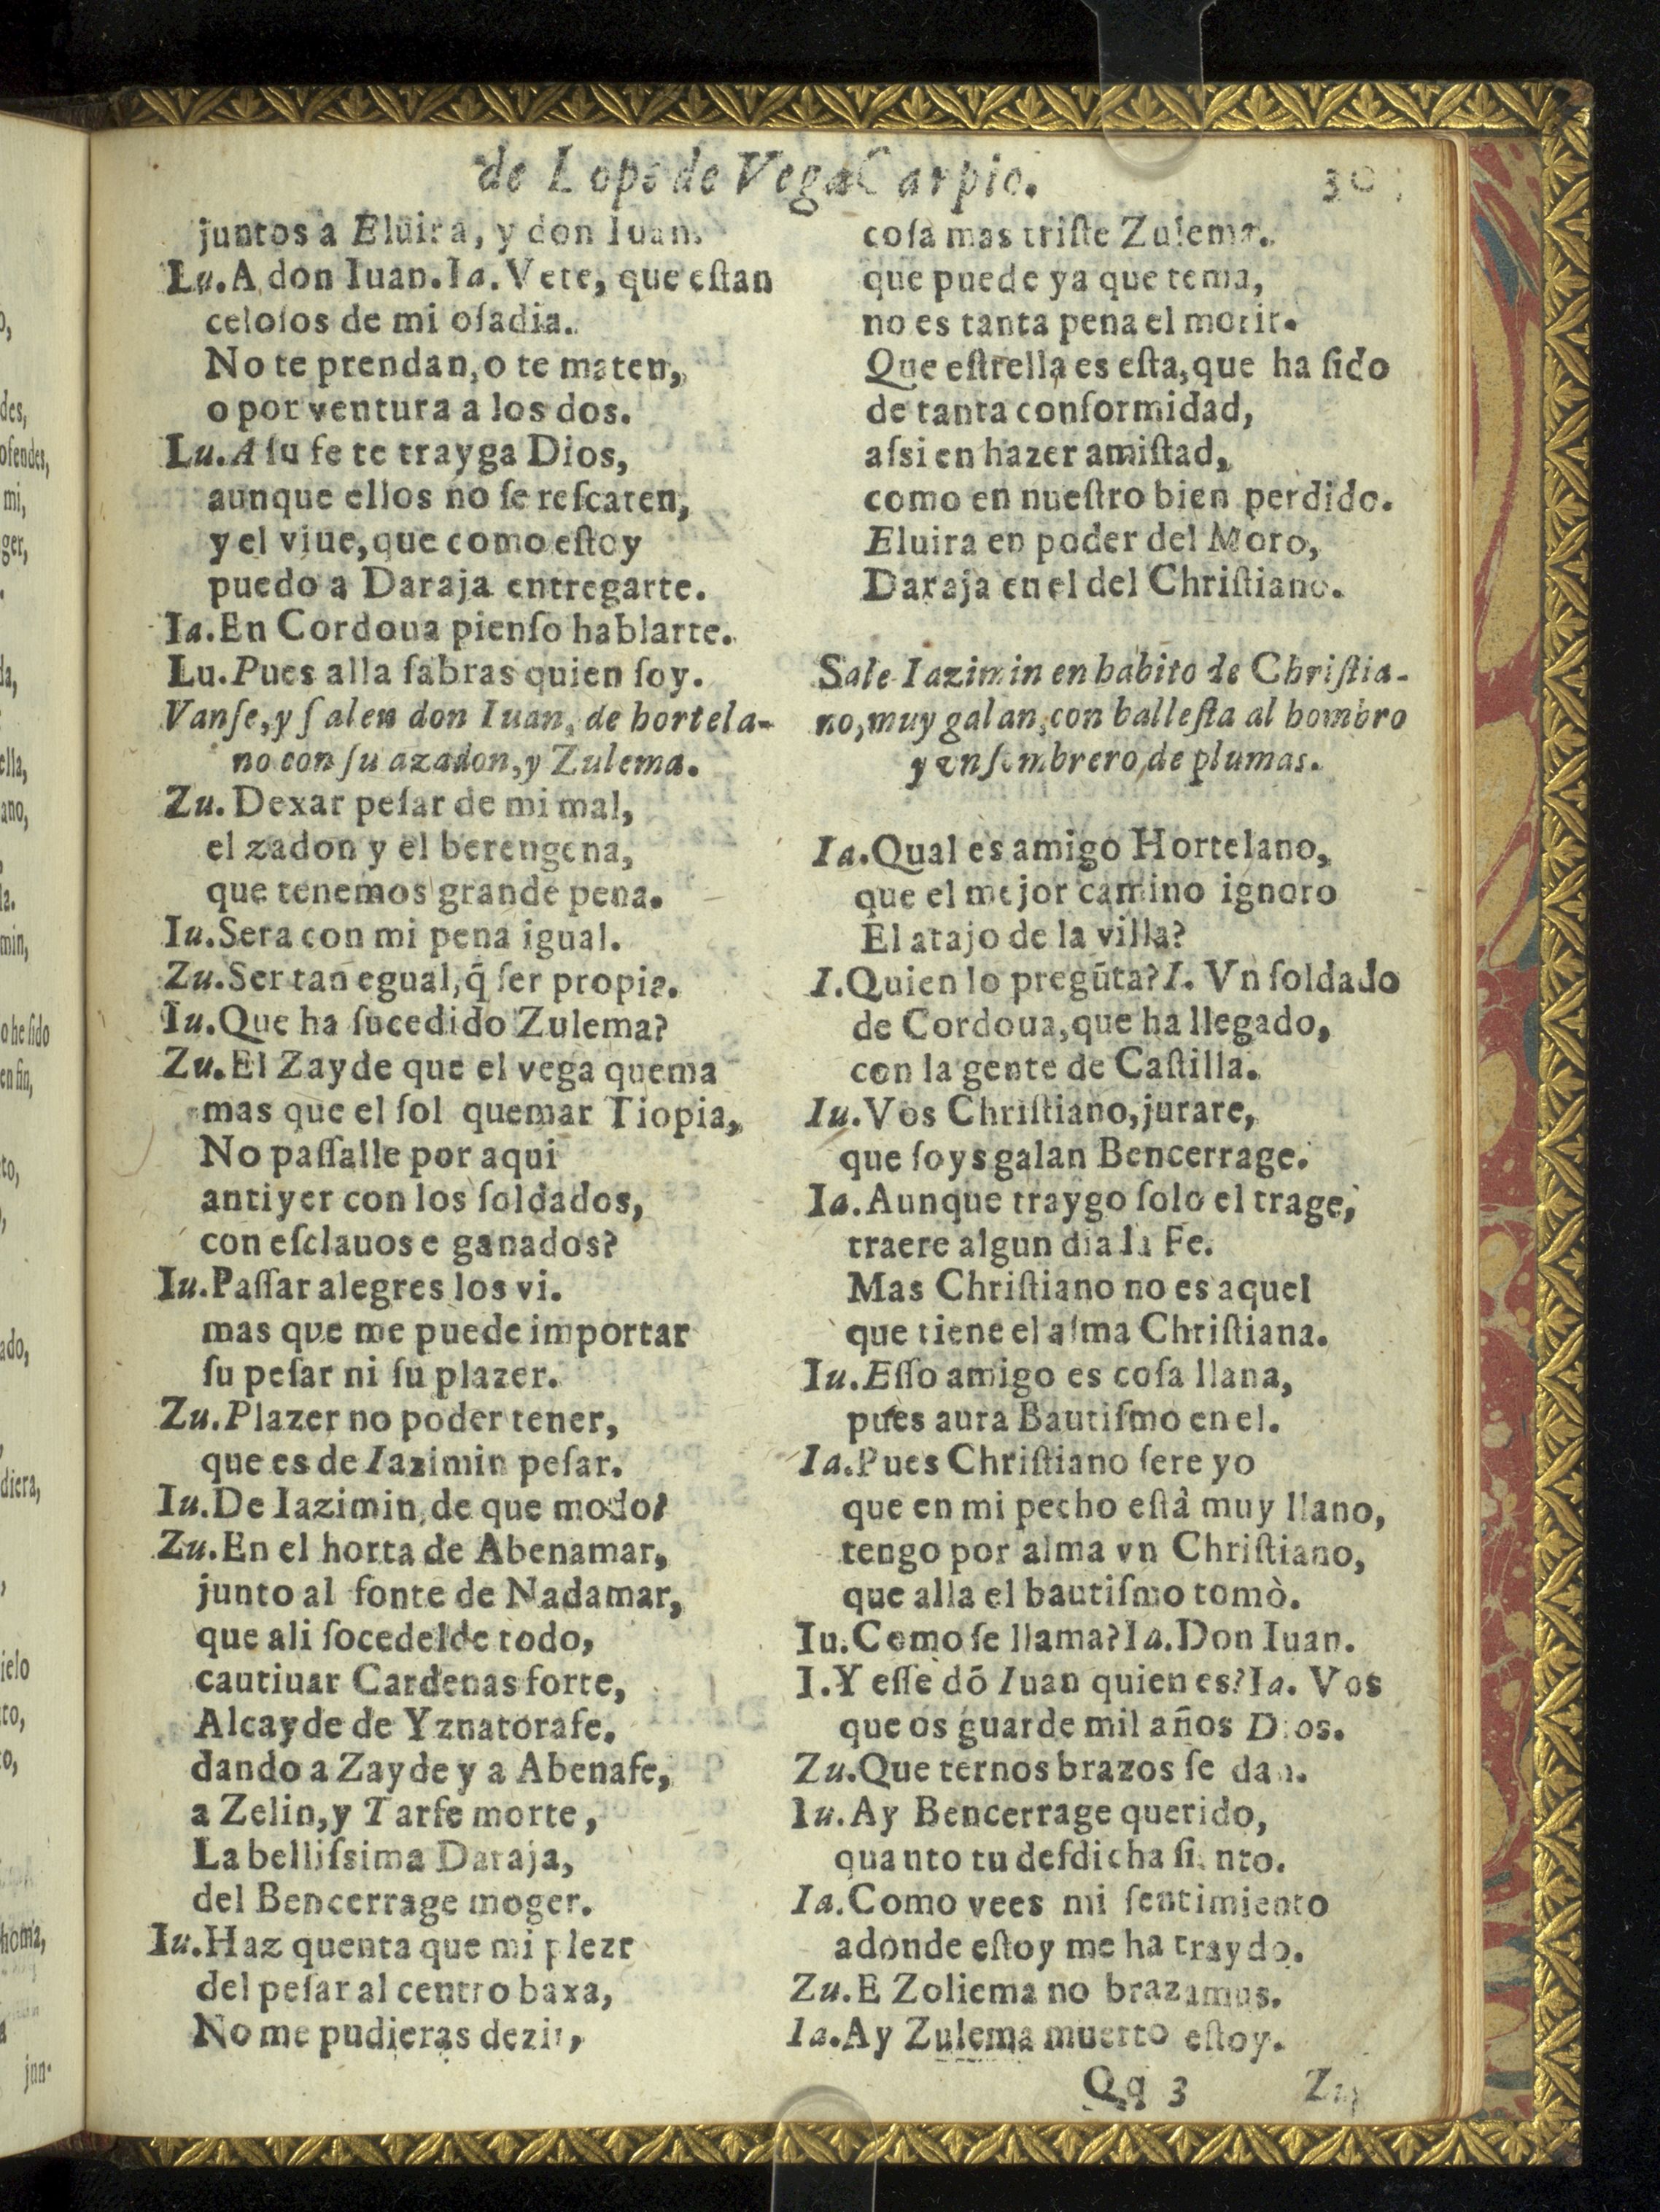 de Lope de Vega Carpio.
juntos a Eluira, y don Iuan.
Lu.A don Iuan.Ia.Vete, que eſtan
celoſos de mi oſadia.
No te prendan, o te maten,
o por ventura a los dos.
Lu.A ſu fe te trayga Dios,
aunque ellos no ſe reſcaten,
y el viue, que como eſtoy
puedo a Daraja entregarte.
Ia.En Cordoua pienſo hablarte.
Lu.Pues alla ſabras quien ſoy.
Vanſe, y ſalen don Iuan, de hortela-
no con ſu azadon, y Zulema.
Zu.Dexar peſar de mi mal,
el zadon y el berengena,
que tenemos grande pena.
Iu.Sera con mi pena igual.
Zu.Ser tan egual, q̃ ſer propia.
Iu.Que ha ſucedido Zulema?
Zu.El Zayde que el vega quema
mas que el ſol quemar Tiopia,
No paſſalle por aqui
antiyer con los ſoldados,
con eſclauos e ganados?
Iu.Paſſar alegres los vi.
mas que me puede importar
ſu peſar ni ſu plazer.
Zu.Plazer no poder tener,
que es de Iazimin peſar.
Iu.De Iazimin, de que modo?
Zu.En el horta de Abenamar,
junto al fonte de Nadamar,
que ali ſocedelde todo,
cautiuar Cardenas forte,
Alcayde de Yznatorafe.
dando a Zayde y a Abenafe,
a Zelin, y Tarfe morte,
La belliſsima Daraja,
del Bencerrage moger.
Iu.Haz quenta que mi plezr
del peſar al centro baxa,
No me pudieras dezir,
coſa mas triſte Zulema.
que puede ya que tema,
no es tanta pena el morir.
Que eſtrella es eſta, que ha ſido
de tanta conformidad,
aſsi en hazer amiſtad,
como en nueſtro bien perdido.
Eluira en poder del Moro,
Daraja en el del Chriſtiano.
Sale Iazimin en habito de Chriſtia-
no, muy galan, con balleſta al hombro
y vn ſombrero de plumas.
Ia.Qual es amigo Hortelano,
que el mejor camino ignoro
El atajo de la villa?
I.Quien lo pregũta?I. Vn ſoldado
de Cordoua, que ha llegado,
con la gente de Caſtilla.
Iu.Vos Chriſtiano, jurare,
que ſoys galan Bencerrage.
Ia.Aunque traygo ſolo el trage,
traere algun dia la Fe.
Mas Chriſtiano no es aquel
que tiene el alma Chriſtiana.
Iu.Eſſo amigo es coſa llana,
pues aura Bautiſmo en el.
Ia.Pues Chriſtiano ſere yo
que en mi pecho eſtà muy llano,
tengo por alma vn Chriſtiano,
que alla el bautiſmo tomò.
Iu.Como ſe llama?Ia.Don Iuan.
I.Y eſſe dõ Iuan quien es?Ia. Vos
que os guarde mil años Dios.
Zu.Que ternos brazos ſe dan.
Iu.Ay Bencerrage querido,
quanto tu deſdicha ſiento.
Ia.Como vees mi ſentimiento
adonde eſtoy me ha traydo.
Zu.E Zoliema no brazamus.
Ia.Ay Zulema muerto eſtoy.
Qq 3